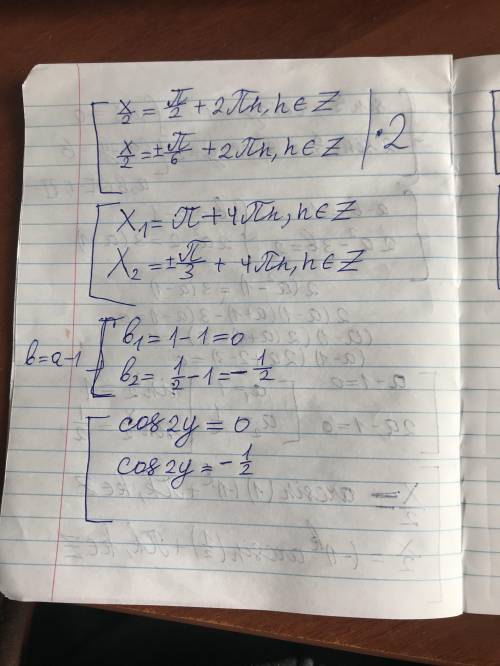 x/2 = π/2 + 2πn, n∈Z
x/2 = ±π/6 + 2πn, n∈Z | ·2
X₁ = π + 4πn, n∈Z
X₂ = ±π/3 + 4πn, n∈Z
b=a-1
b₁ = 1-1=0
b₂ = 1/2 -1 = -1/2
cos2y = 0
cos2y = -1/2